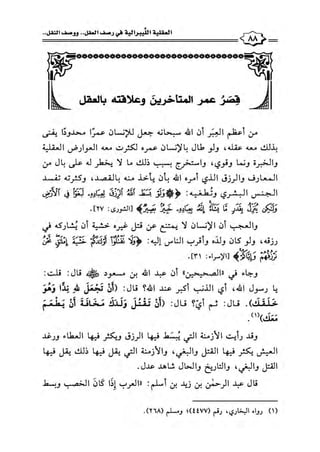 العقلية اللِّيبرالية في رصف العقل.. ووصف النقل..
٨٨
قِصَرُ عمر المتأخرين وعلاقته بالعقل
من أعظم العِبَر أن الله سبحانه جعل للإنسان عمرًا محدودًا يفنى
بذلك معه عقله، ولو طال بالإنسان عمره لكثرت معه العوارض العقلية
والخبرة ونما وقوي، واستخرج بسبب ذلك ما لا يخطر له على بال من
المعارف والرزق الذي أمره الله بأن يأخذ منه بالقصد، وكثرته تفسد
الجنس البشري وتُطغيه: ﴿وَلَوْ بَسَطَ اللَّهُ الرِّزْقَ لِعِبَادِهِ لَبَغَوْا فِي الْأَرْضِ
وَلَكِن يُنَزِّلُ بِقَدَرٍ مَّا يَشَاءُ إِنَّهُ بِعِبَادِهِ خَبِيرٌ بَصِيرٌ﴾ [الشورى: ٢٧].
والعجب أن الإنسان لا يمتنع عن قتل غيره خشية أن يشاركه في
رزقه، ولو كان ولده وأقرب الناس إليه: ﴿وَلَا تَقْتُلُوا أَوْلَادَكُمْ خَشْيَةَ إِمْلَاقٍ نَّحْنُ
نَرْزُقُهُمْ وَإِيَّاكُمْ﴾ [الإسراء: ٣١].
وجاء في «الصحيحين» أن عبد الله بن مسعود ﷺ قال: قلت:
يا رسول الله، أي الذنب أكبر عند الله؟ قال: (أَنْ تَجْعَلَ لِلَّهِ نِدًّا وَهُوَ
خَلَقَكَ). قال: ثم أيّ؟ قال: (أَنْ تَقْتُلَ وَلَدَكَ مَخَافَةَ أَنْ يَطْعَمَ
مَعَكَ)(١).
وقد رأيت الأزمنة التي يُبسَط فيها الرزق ويكثر فيها العطاء ورغد
العيش يكثر فيها القتل والبغي، والأزمنة التي يقل فيها ذلك يقل فيها
القتل والبغي، والتاريخ والحال شاهد عدل.
قال عبد الرحمٰن بن زيد بن أسلم: «العرب إِذَا كَانَ الخصب وبسط
(١) رواه البخاري، رقم (٤٤٧٧)؛ ومسلم (٢٦٨).